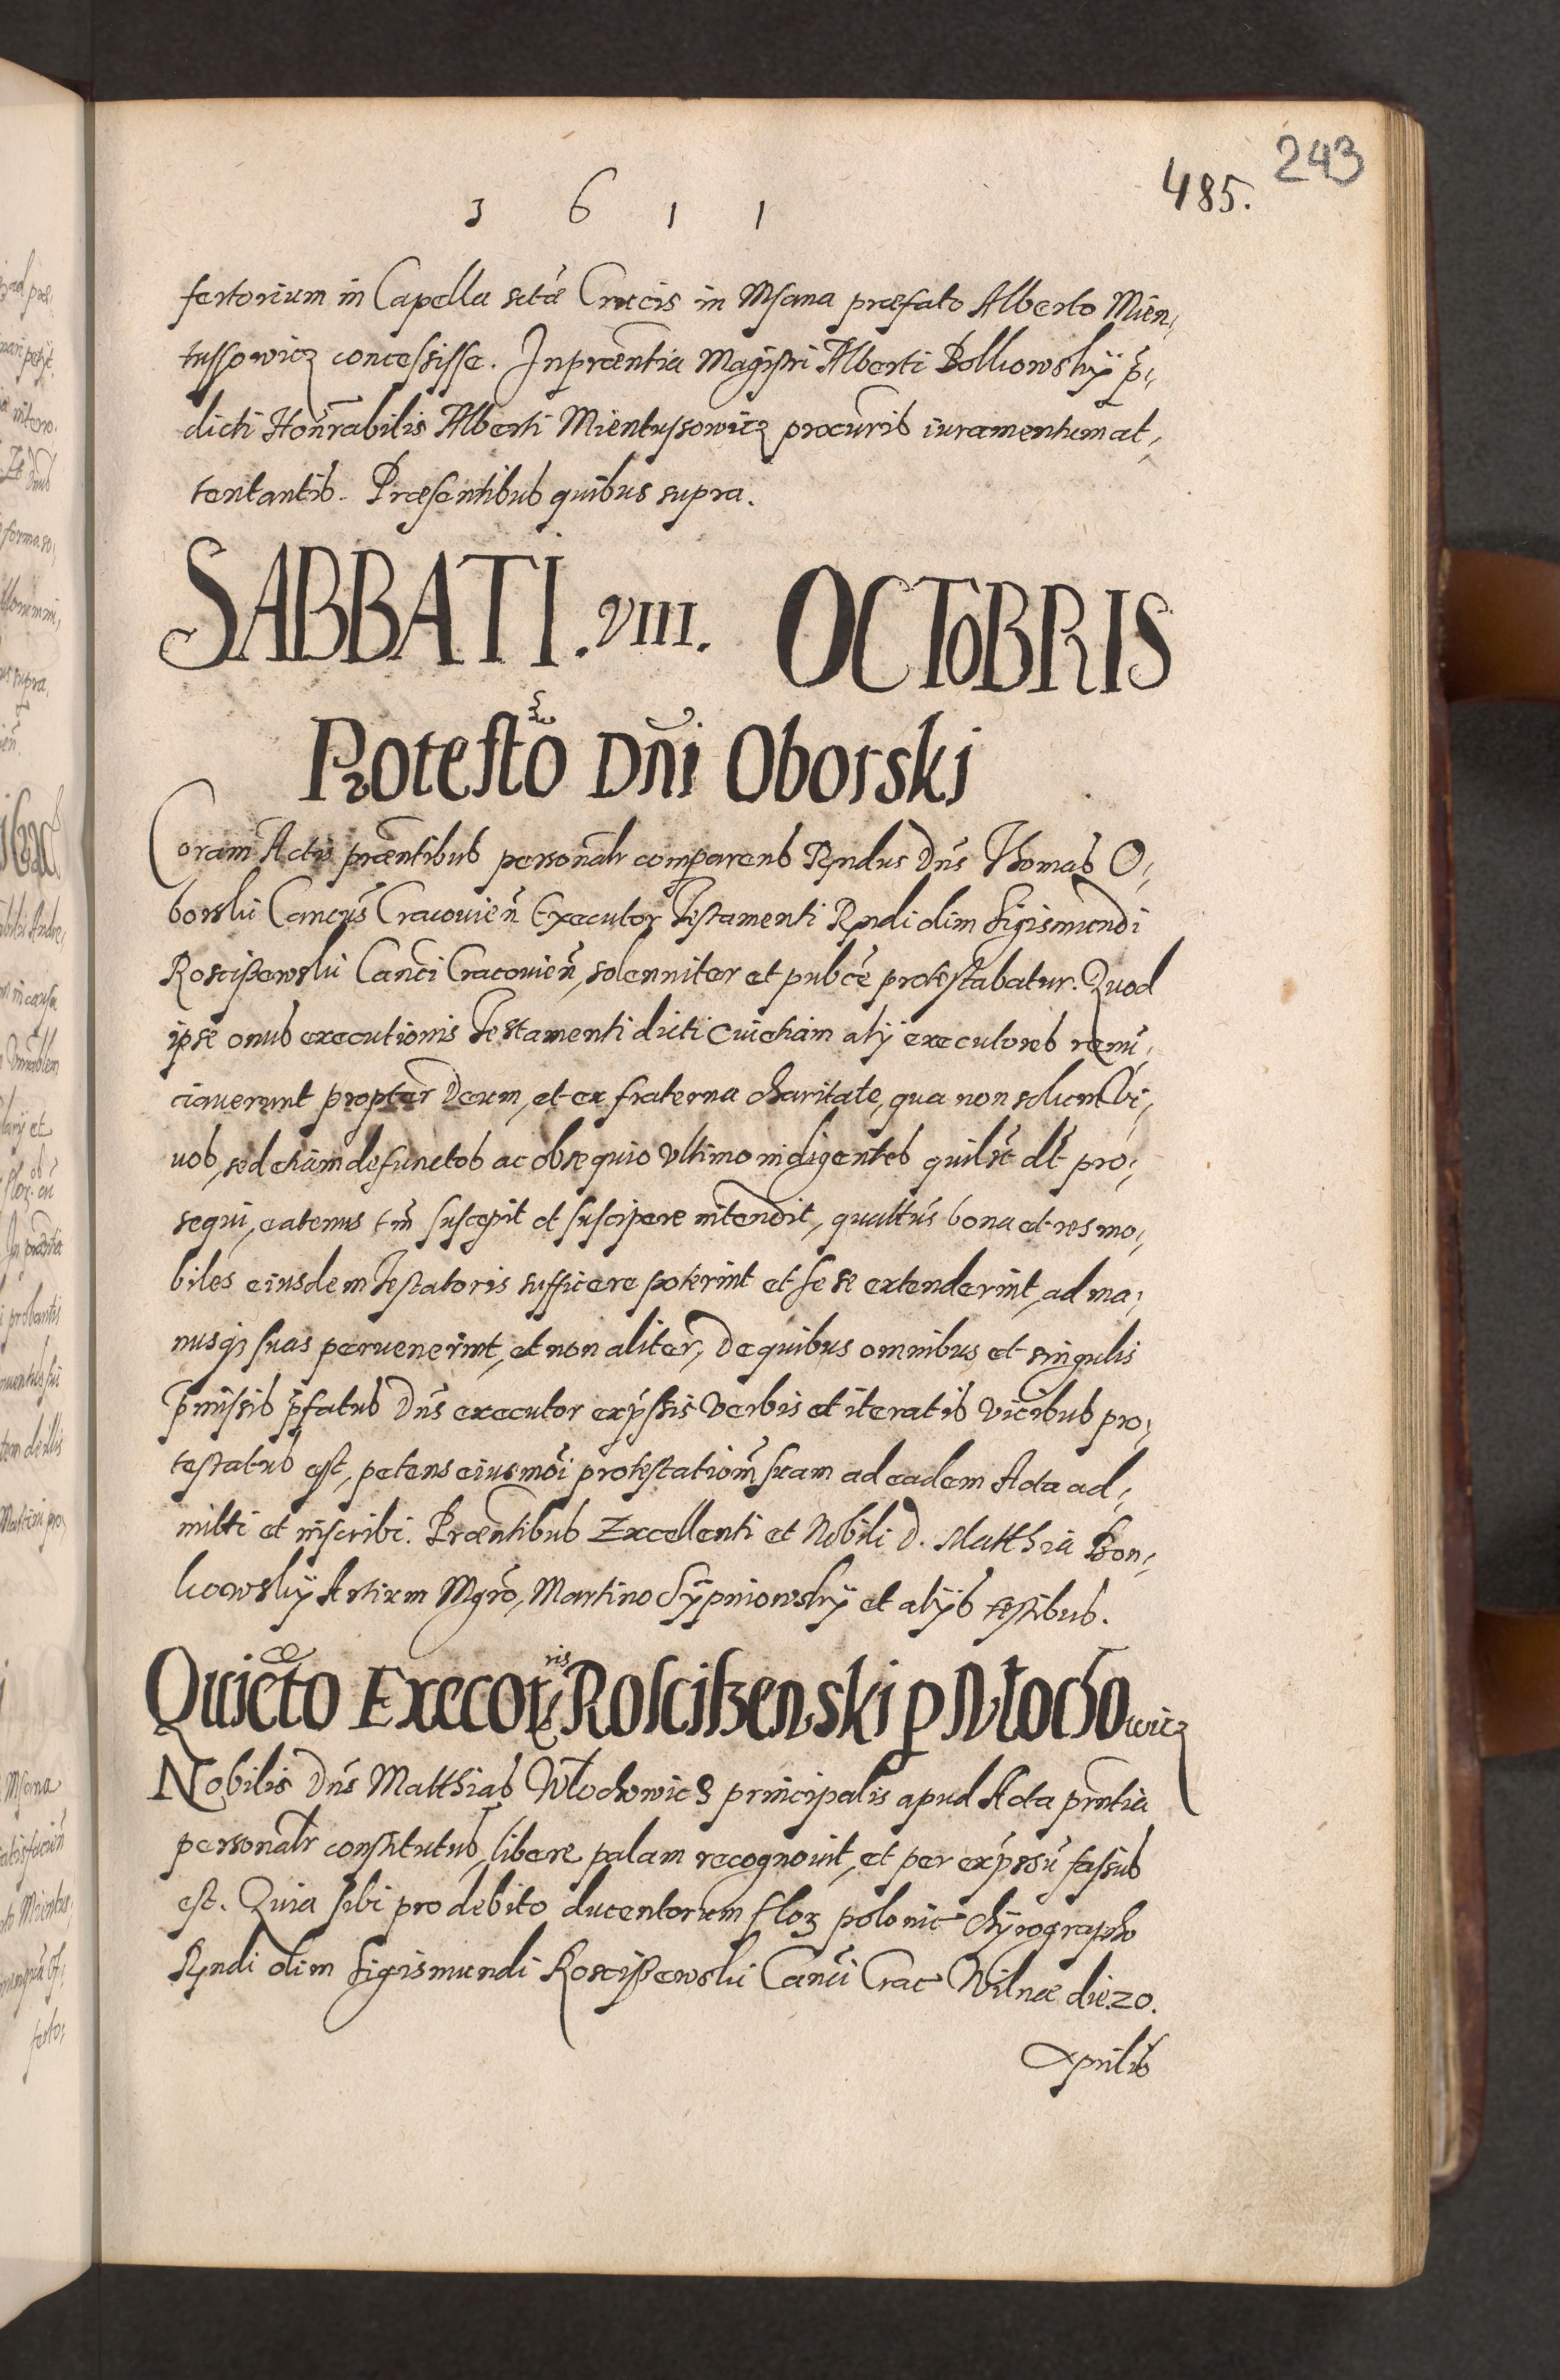 243
485.
1 6 1 1
fertorium in Capella sctæ Crucis in Msana præfato Alberto Mien,
tussowicz concessisse. In præntia Magistri Alberti Bolkowskÿ p̃,
dicti Honr̃abilis Alberti Mientussowicz procuris iuramentum at,
tentantis. Præsentibus quibus supra.
SABBATI. VIII. OCTOBRIS
Protesto Dñi Oborski
Coram Actis præntibus personalr comparens Rndus Dns Thomas O,
borski Cancus Cracovien̄ Executor Testamenti Rndi olim Sigismundi
Rosciszewski Canci Cracovien̄, solenniter et pubce protestabatur. Quod
ipse onus executionis Testamenti dicti cui etiam alij executores renu,
ciaverunt propter Deum, et ex fraterna charitate, qua non solum vi,
vos, sed etiam defunctos ac obsequio ultimo indigentes quilt dt pro,
sequi, eatenus tm̃ suscepit et suscipere intendit, quattus bona et res mo,
biles eiusdem Testatoris sufficere poterint et sese extenderint, ad ma,
nusqz suas pervenerint, et non aliter, De quibus omnibus et singulis
p̃missis p̃fatus Dns executor exp̃ssis verbis et iteratis vicibus pro,
testatus est, petens eiusmoi protestationem suam ad eadem Acta ad,
mitti et inscribi. Præntibus Excellenti et Nobili D. Matthia Bon,
kowskÿ Artium Mgro, Martino Sÿpniowskÿ et alÿs testibus.
Quieto Execoris Rosciszewski p Włochowicz
Nobilis Dns Matthias Włochowicz principalis apud Acta prntia
personalr constitutus, libere palam recognovit, et per exp̃ssu fassus
est. Quia sibi pro debito ducentorum flor polonic chÿrographo
Rndi olim Sigismundi Rosciszewski Canci Crac Wilnæ die 20.
Aprilis